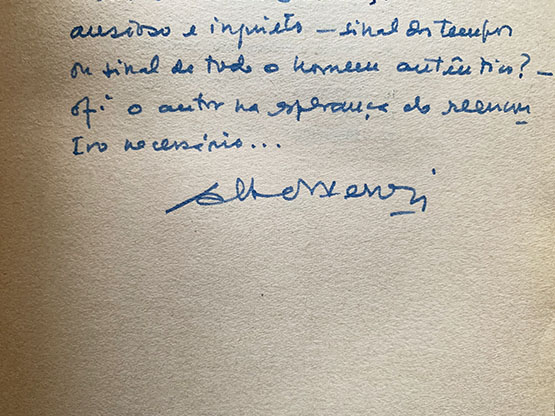 ansioso e inquieto — sinal dos tempos
ou sinal de todo o homem autêntico? —
of. o autor na esperança do reencon
tro necessário...